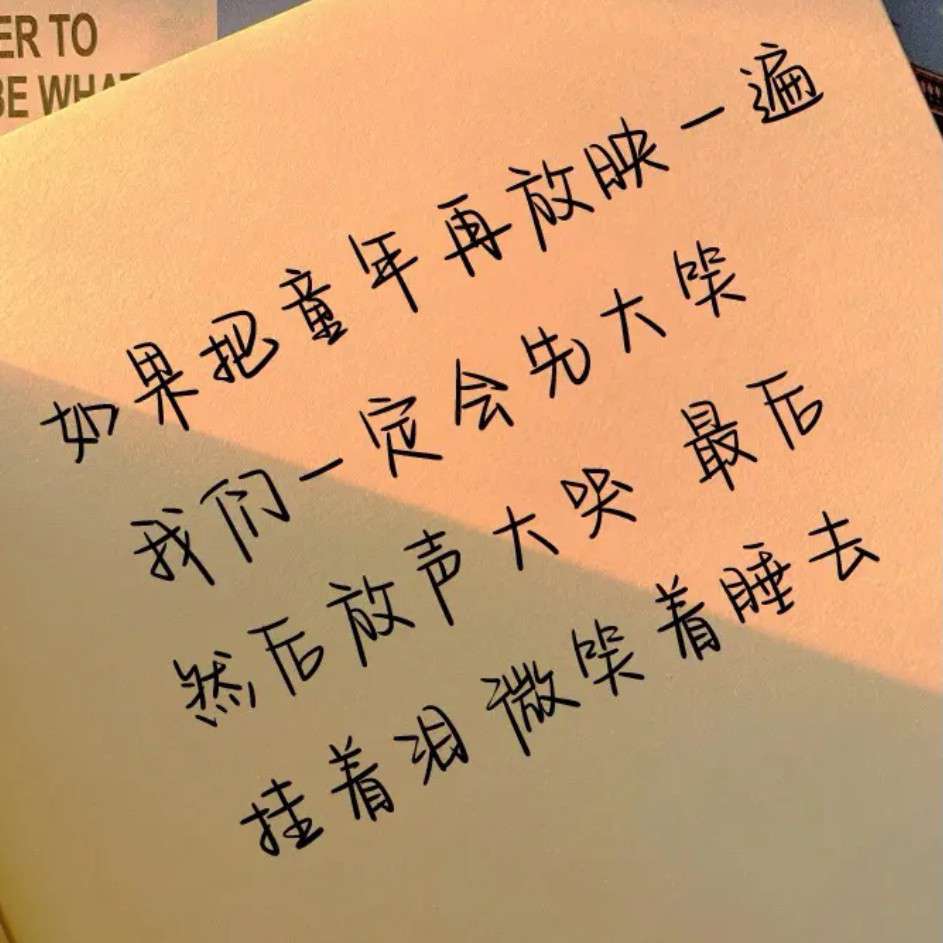 ER TO
BE WHAT
如果把童年再放映一遍
我们一定会先大笑
然后放声大哭 最后
挂着泪微笑着睡去